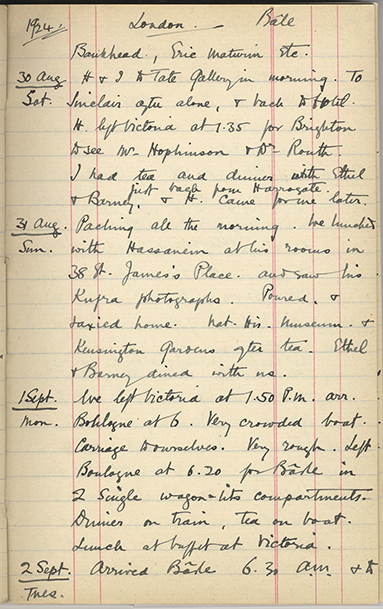 1924. London. Bâle
Bankhead, Eric Maturin etc.
30 Aug H & I to Tate Gallery in morning. To
Sat. Sinclair after alone, & back to Hotel.
H. left Victoria at 1.35 for Brighton
to see Mr Hopkinson & Dr Routh
I had tea and dinner with Ethel
just back from Harrogate.
& Barney, & H. came for me later.
31 Aug. Packing all the morning. We lunched
Sun. with Hassanein at his rooms in
38 St. James's Place. and saw his
Kufra photographs. Poured. &
taxied home. Nat. His. Museum. &
Kensington Gardens after tea. Ethel
& Barney dined with us.
1 Sept. We left Victoria at 1.50 P.M. arr.
Mon. Boulogne at 6. Very crowded boat.
Carriage to ourselves. Very rough. Left
Boulogne at 6.20 for Bâle in
2 single wagon-lits compartments.
Dinner on train, tea on boat.
Lunch at buffet at Victoria.
2 Sept. Arrived Bâle 6.30 a.m. & to
Tues.